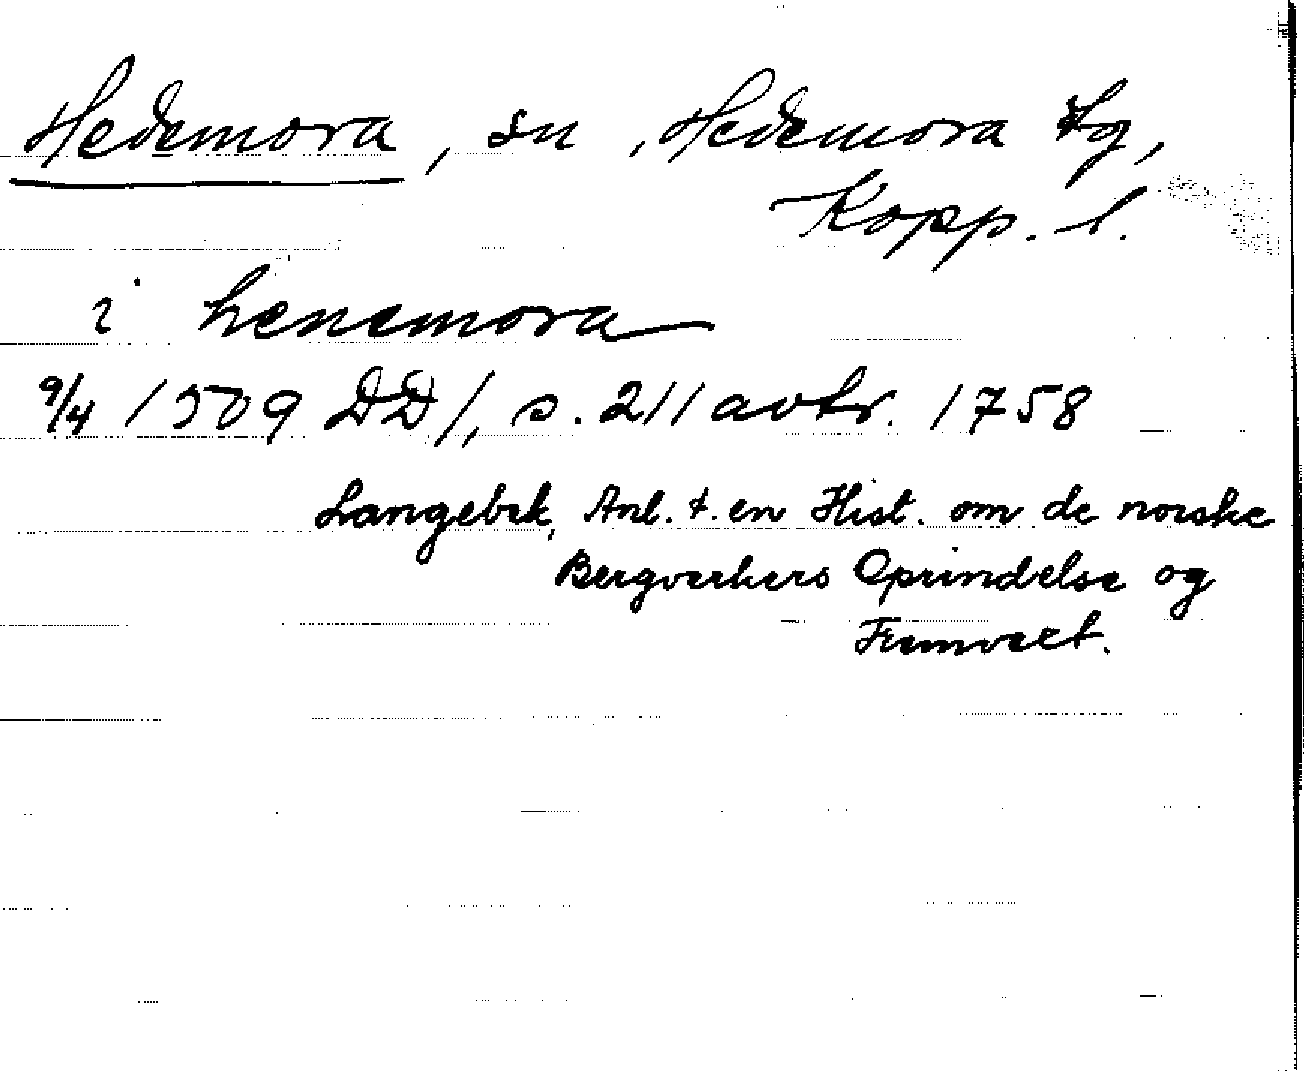 Hedemora, sn, Hedemora tg,
Kopp. l.
i henemora
9/4 1509 DD1, s. 211 avtr. 1758
Langebek, Anl. t. en Hist. om de norske
Bergverkers Oprindelse og
Fremvext.